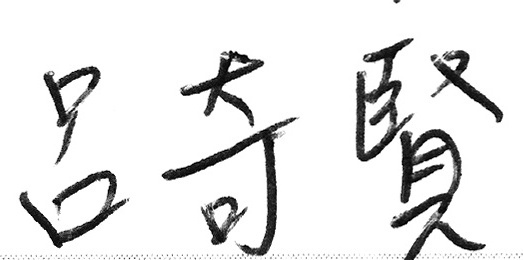 呂奇賢